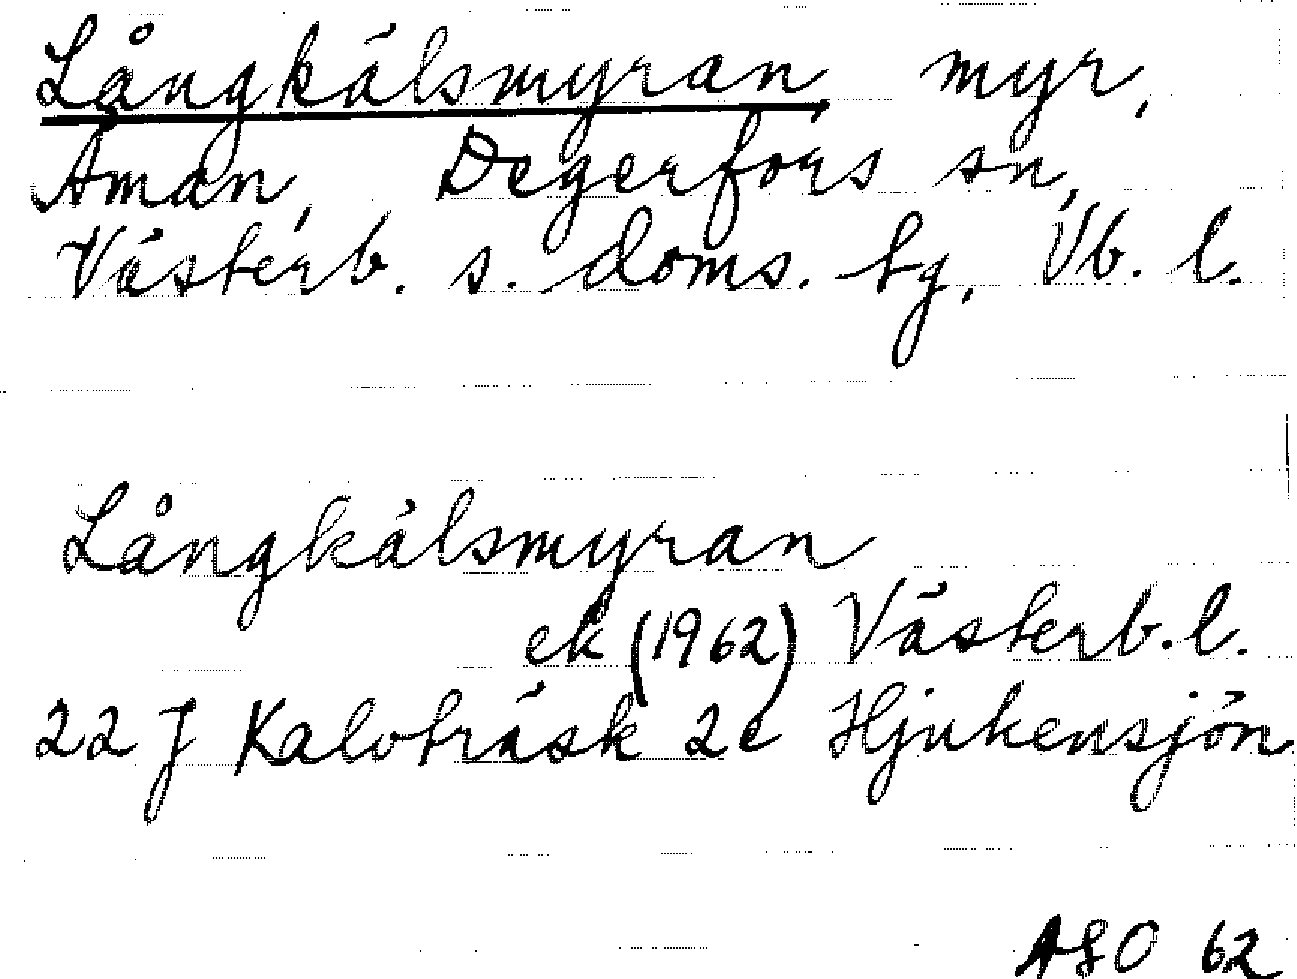 Långkälsmyran, myr,
Åman, Degerfors sn,
Västerb. s. doms. tg, Vb. l.
Långkälsmyran
ek (1962) Västerb. l.
22 J Kalvträsk 2e Hjukensjön
ASO 62